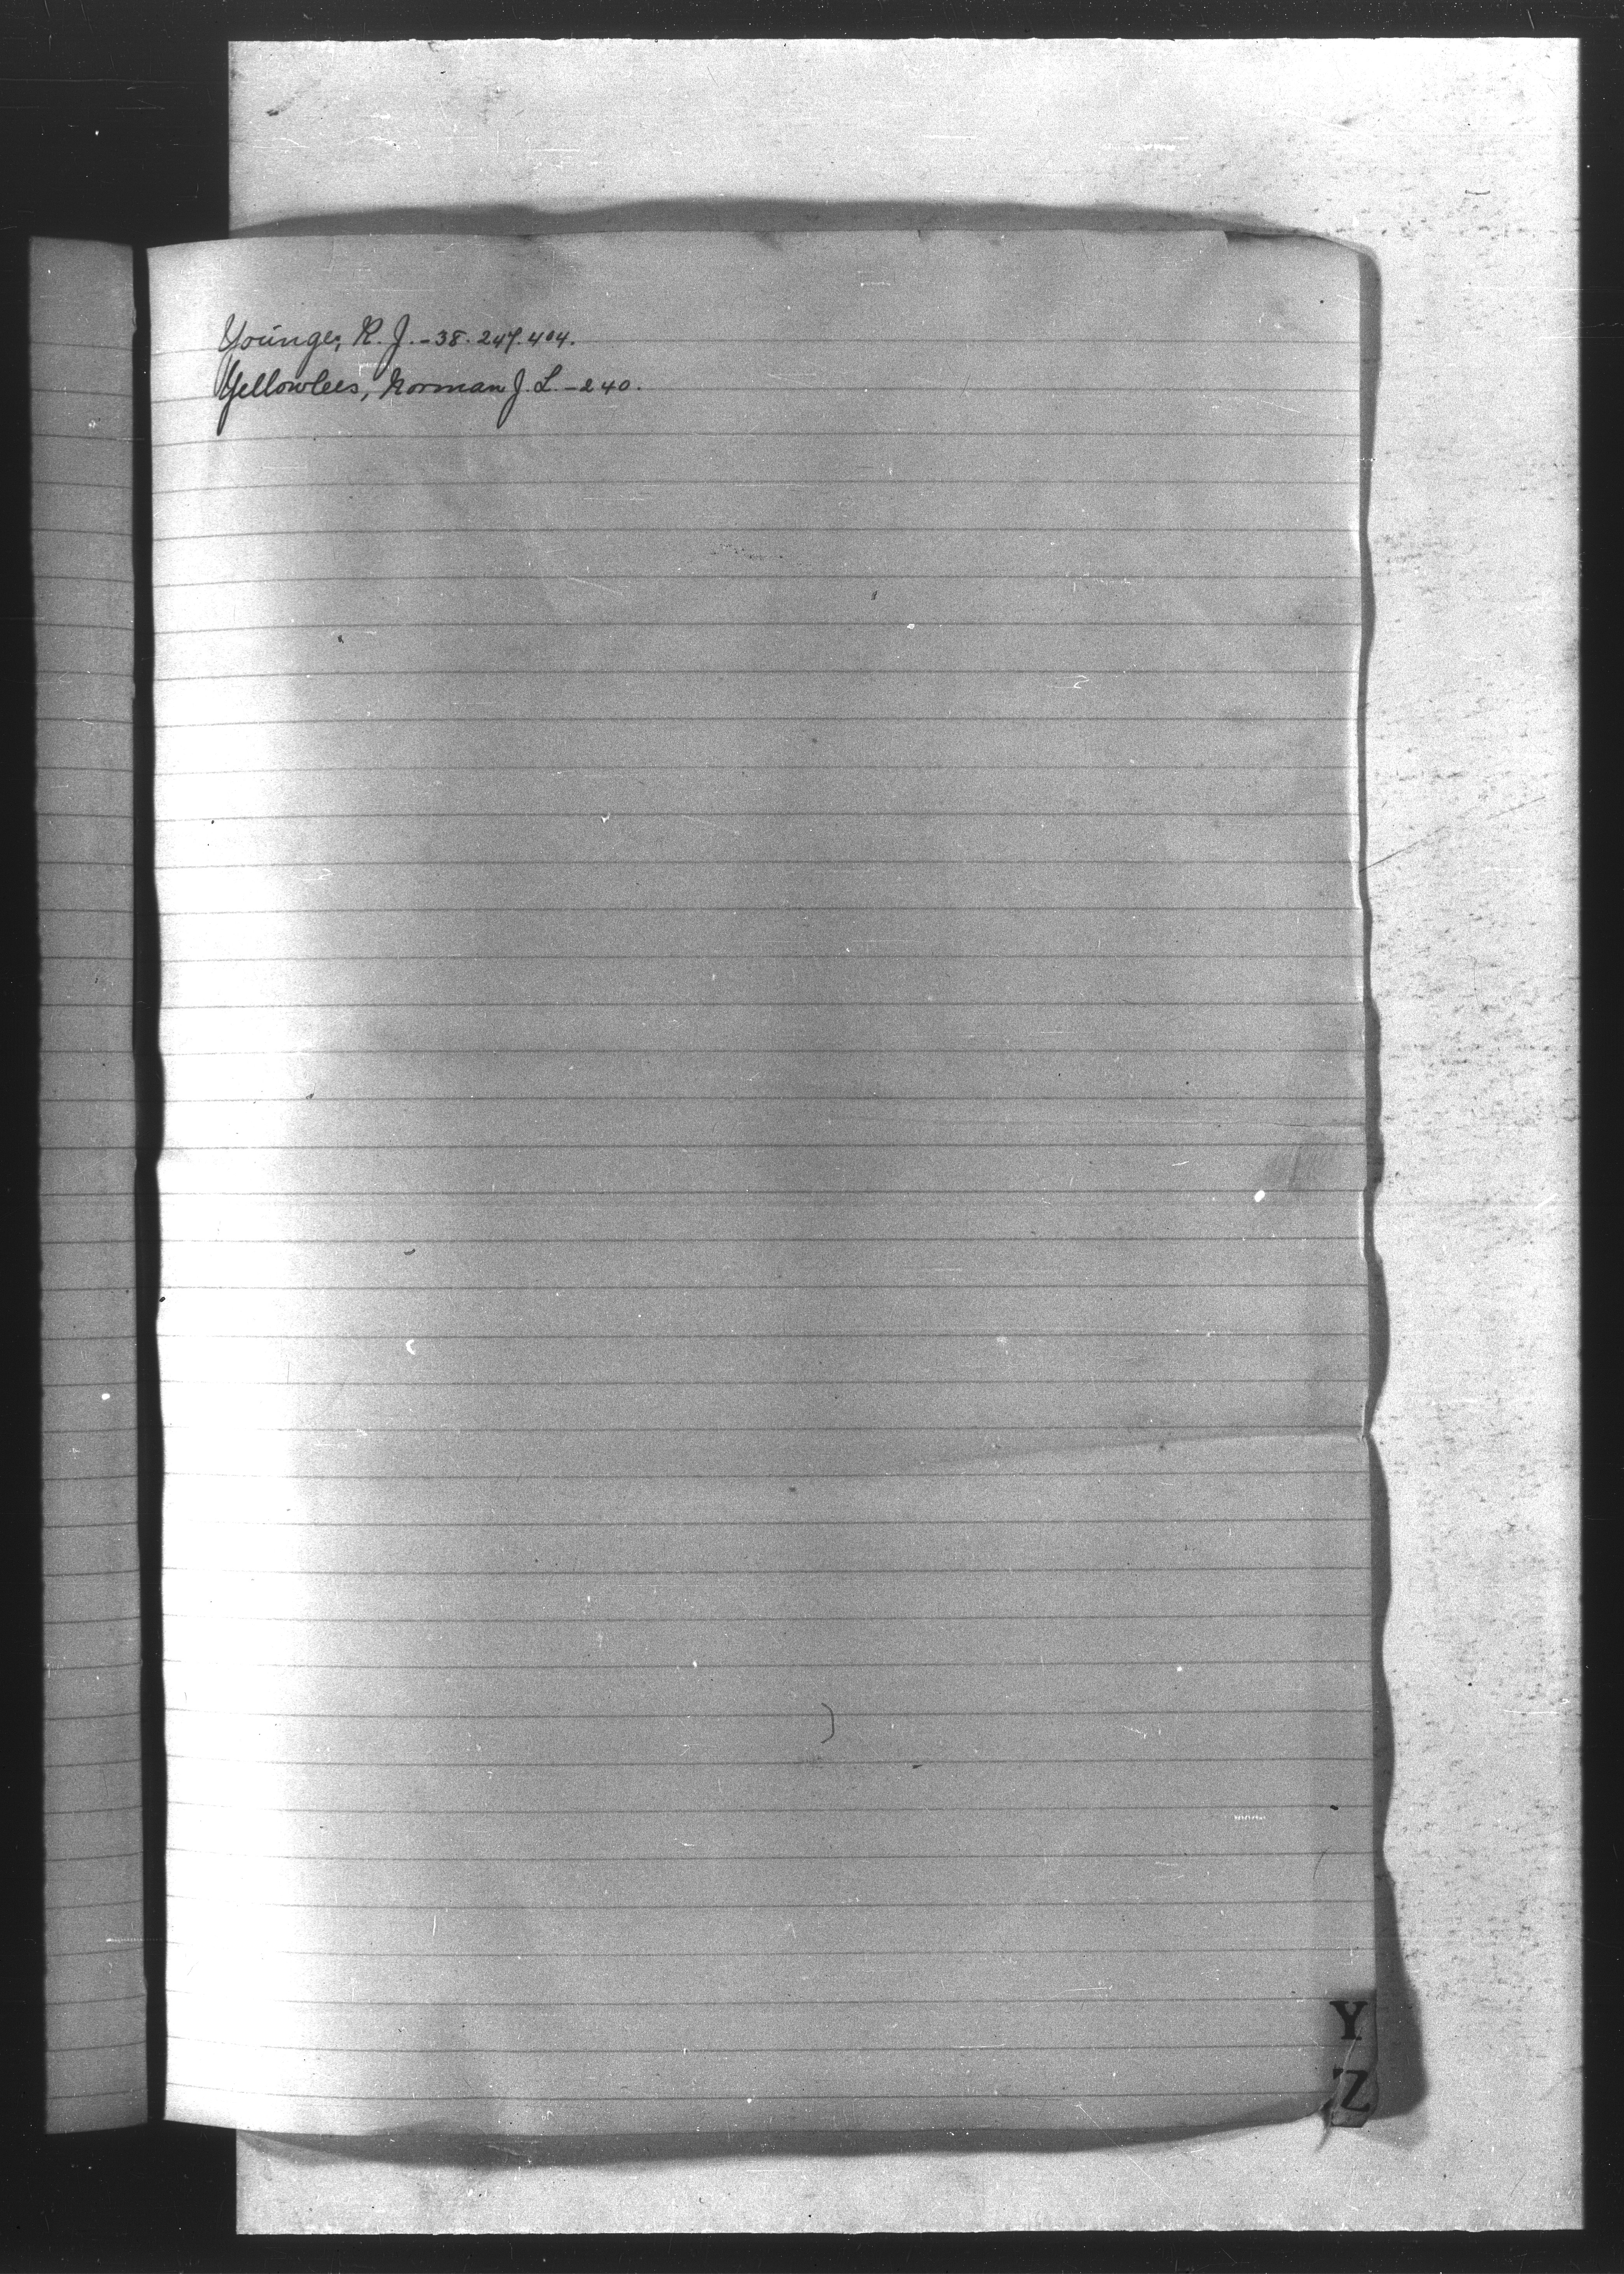 Younger, R. J. - 38. 247. 404.
Yellowlees, Norman J. L. - 240.
Y
Z